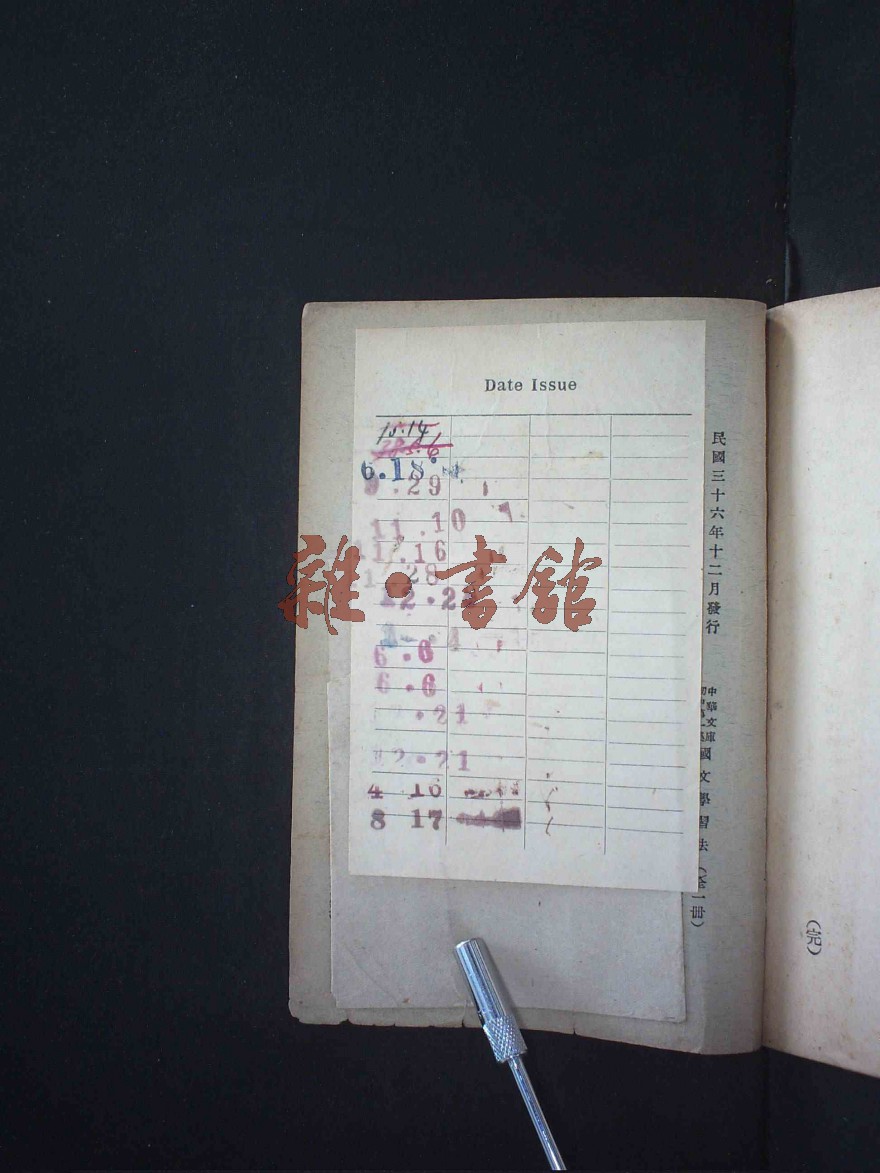 Date Issue
15.14
6.18
9.29
11.10
11.16
28
12.2
6.6
6.6
.21
12.21
4 16
8 17
民國三十六年十二月發行
中華文庫
初中第一集
國文學習法（全一冊）
（完）
雜·書館